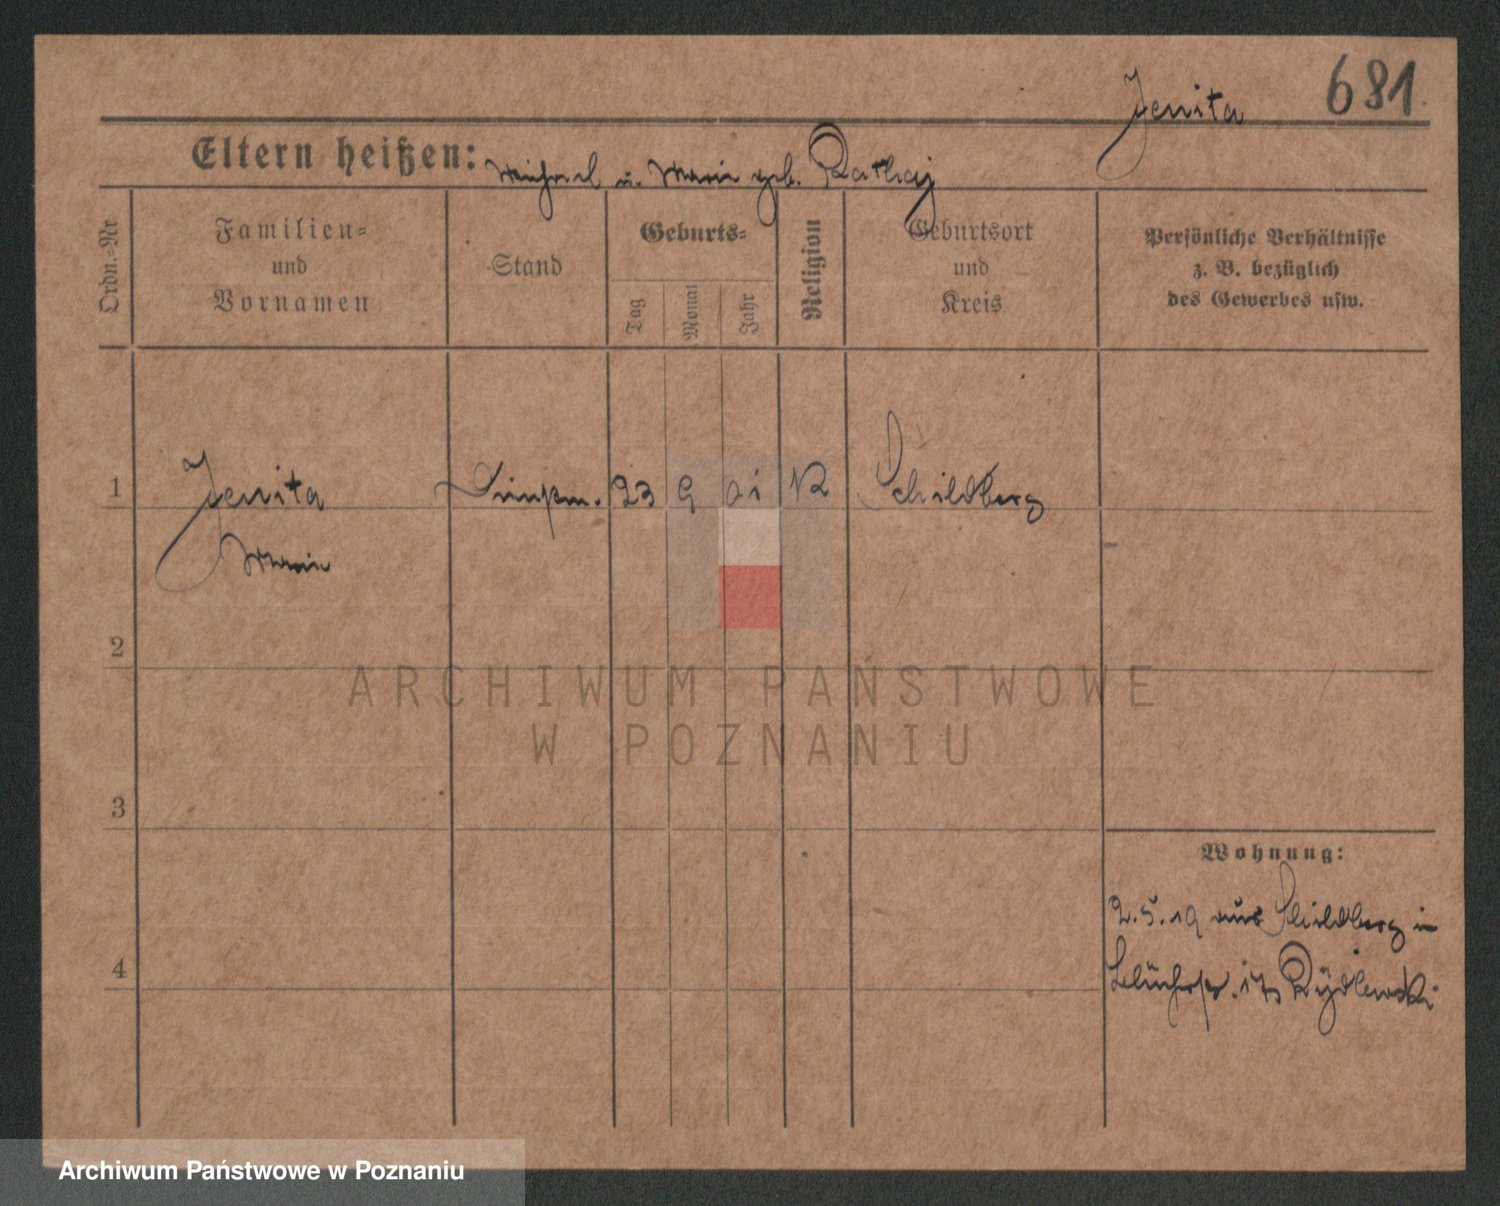 Jenita 681
Eltern heißen: Michael u. Marie geb. Rathaj
Ordn.-Nr
Familien-
und
Vornamen
Stand
Geburts-
Tag
Monat
Jahr
Religion
Geburtsort
und
Kreis
Persönliche Verhältnisse
z. B. bezüglich
des Gewerbes usw.
1 Jenita 23 9 01 K Schildberg
Marie
2
3
4
Wohnung:
2.5.19 aus Schildberg in
Blücherstr. 17 Rÿdlewski
ARCHIWUM PAŃSTWOWE
W POZNANIU
Archiwum Państwowe w Poznaniu